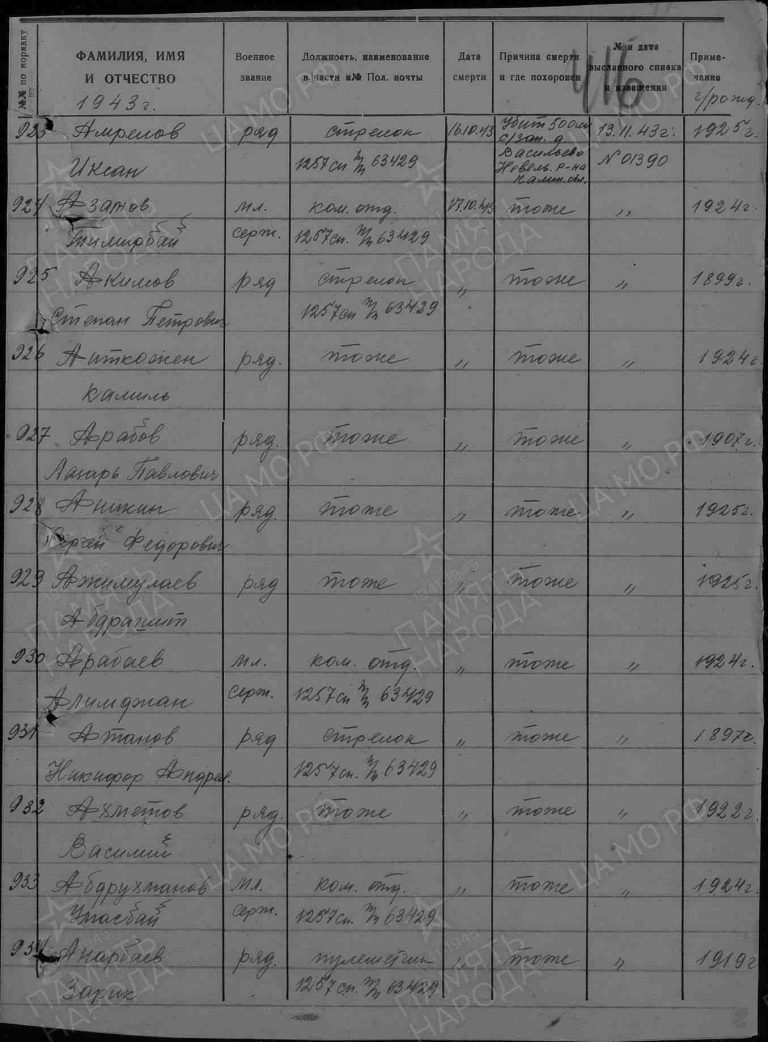 №№ по порядку
ФАМИЛИЯ, ИМЯ И ОТЧЕСТВО
1943 г.
Военное звание
Должность, наименование в. части и № Пол. почты
Дата смерти
Причина смерти и где похоронен
№ и дата высланного списка и извещения
Приме-
чание
г/рожд.
923 Амрелов ряд стрелок 16.10.43 Убит 500 м 13.11.43 г. 1925 г.
Иксан 1257 сп п/п 63429 с/зап. д. Васильево Невель. р-на Калин. обл. N 01390
924 Азамов мл. ком. отд. 17.10.43 тоже " 1924 г.
Тимирбай серж. 1257 сп. п/п 63429
925 Акимов ряд стрелок " тоже " 1899 г.
Степан Петрович 1257 сп п/п 63429
926 Аиткожен ряд. тоже " тоже " 1924 г
Калиль
927 Арабов ряд. тоже " тоже " 1907 г.
Лазарь Павлович
928 Аникин ряд. тоже " тоже " 1925 г.
Сергей Федорович
929 Ажимулаев ряд тоже " тоже " 1925 г.
Абдрашит
930 Арабаев мл. ком. отд. " тоже " 1924 г.
Алимджан серж. 1257 сп п/п 63429
931 Атанов ряд стрелок " тоже " 1897 г.
Никифор Андреев. 1257 сп. п/п 63429
932 Ахметов ряд. тоже " тоже " 1922 г
Василий
933 Абдрухманов мл. ком. отд. " тоже " 1924 г.
серж. 1257 сп. п/п 63429
934 Анарбаев ряд. пулеметчик " тоже " 1919 г
Зарик 1257 сп. п/п 63429
ЦА МО РФ
ПАМЯТЬ НАРОДА